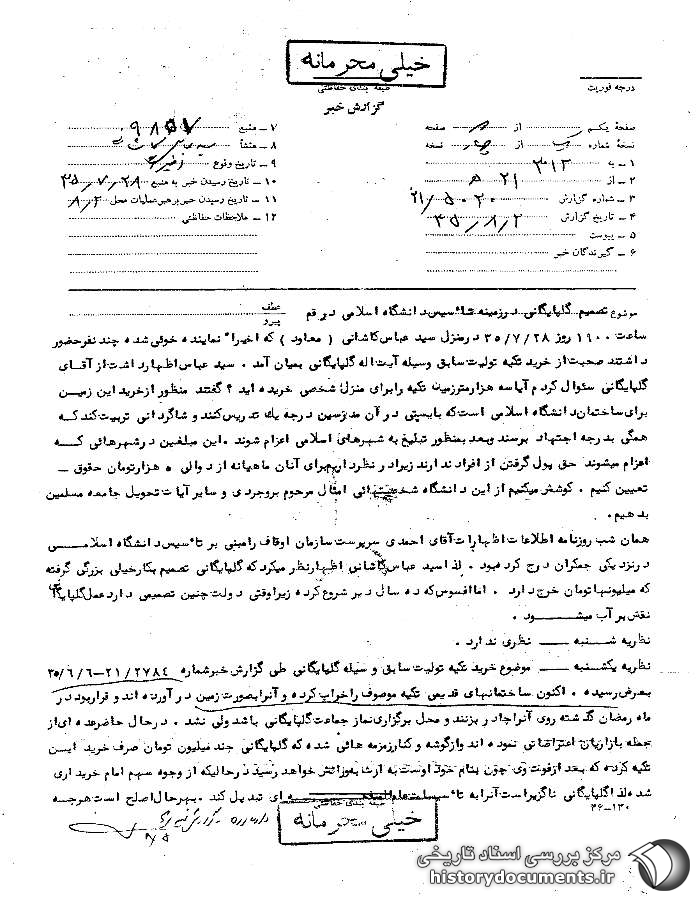 خیلی محرمانه
درجه فوریت
طبقه بندی حفاظتی
گزارش خبر
صفحه یکم از صفحه
نسخه شماره از نسخه
۱ ـ به ۳۱۲
۲ ـ از ۲۱ ه
۳ ـ شماره گزارش ۲۱/۵۰۲۰
۴ ـ تاریخ گزارش ۳۵/۸/۲
۵ ـ پیوست
۶ ـ گیرندگان خبر
۷ ـ منبع ۹۸۵۷
۸ ـ منشأ
۹ ـ تاریخ وقوع
۱۰ ـ تاریخ رسیدن خبر به منبع ۳۵/۷/۲۸
۱۱ ـ تاریخ رسیدن خبر برهبر عملیات محل ۸/۲
۱۲ ـ ملاحظات حفاظتی
موضوع تصمیم گلپایگانی در زمینه تأسیس دانشگاه اسلامی در قم
عطف
پیرو
ساعت ۱۹۰۰ روز ۳۵/۷/۲۸ در منزل سید عباس کاشانی ( معاود ) که اخیرا" نماینده خوئی شده چند نفر حضور
داشتند صحبت از خرید تکیه تولیت سابق وسیله آیت اله گلپایگانی بمیان آمد . سید عباس اظهار داشت از آقای
گلپایگانی سئوال کردم آیا سه هزار متر زمین تکیه را برای منزل شخصی خریده اید ؟ گفتند منظور از خرید این زمین
برای ساختمان دانشگاه اسلامی است که بایستی در آن مدرسین درجه یک تدریس کنند و شاگردانی تربیت کند که
همگی بدرجه اجتهاد برسند و بعد بمنظور تبلیغ به شهرهای اسلامی اعزام شوند . این مبلغین در شهرهائی که
اعزام میشوند حق پول گرفتن از افراد ندارند زیرا در نظر داریم برای آنان ماهیانه از دو الی ه هزار تومان حقوق ـ
تعیین کنیم . کوشش میکنیم از این دانشگاه شخصیتهائی امثال مرحوم بروجردی و سایر آیات تحویل جامعه مسلمین
بدهیم .
همان شب روزنامه اطلاعات اظهارات آقای احمدی سرپرست سازمان اوقاف را مبنی بر تأسیس دانشگاه اسلامی
در نزدیکی جمکران درج کرده بود . لذا سید عباس کاشانی اظهار نظر میکرد که گلپایگانی تصمیم بکار خیلی بزرگی گرفته
که میلیونها تومان خرج دارد . اما افسوس که ده سال دیر شروع کرده زیرا وقتی دولت چنین تصمیمی دارد عمل گلپایگانی
نقش بر آب میشود .
نظریه شنبه ـــ نظری ندارد .
نظریه یکشنبه ـــ موضوع خرید تکیه تولیت سابق وسیله گلپایگانی طی گزارش خبر شماره ۲۱/۲۷۸۴ـ۳۵/۶/۶
بعرض رسیده . اکنون ساختمانهای قدیمی تکیه موصوف را خراب کرده و آنرا بصورت زمین در آورده اند و قرار بود در
ماه رمضان گذشته روی آنرا چادر بزنند و محل برگزاری نماز جماعت گلپایگانی باشد ولی نشد . در حال حاضر عده ای از
جمله بازاریان اعتراضاتی نموده اند و از گوشه و کنار زمزمه هائی شده که گلپایگانی چند میلیون تومان صرف خرید این
تکیه کرده که بعد از فوت وی چون بنام خود اوست به ارث بورّاثش خواهد رسید در حالیکه از وجوه سهم امام خریداری
شده لذا گلپایگانی ناگزیر است آنرا به تأسیسات ای تبدیل کند . بهرحال اصلح است هرچه
۳۶-۱۳۰
طبقه بندی حفاظتی
خیلی محرمانه
مرکز بررسی اسناد تاریخی
historydocuments.ir